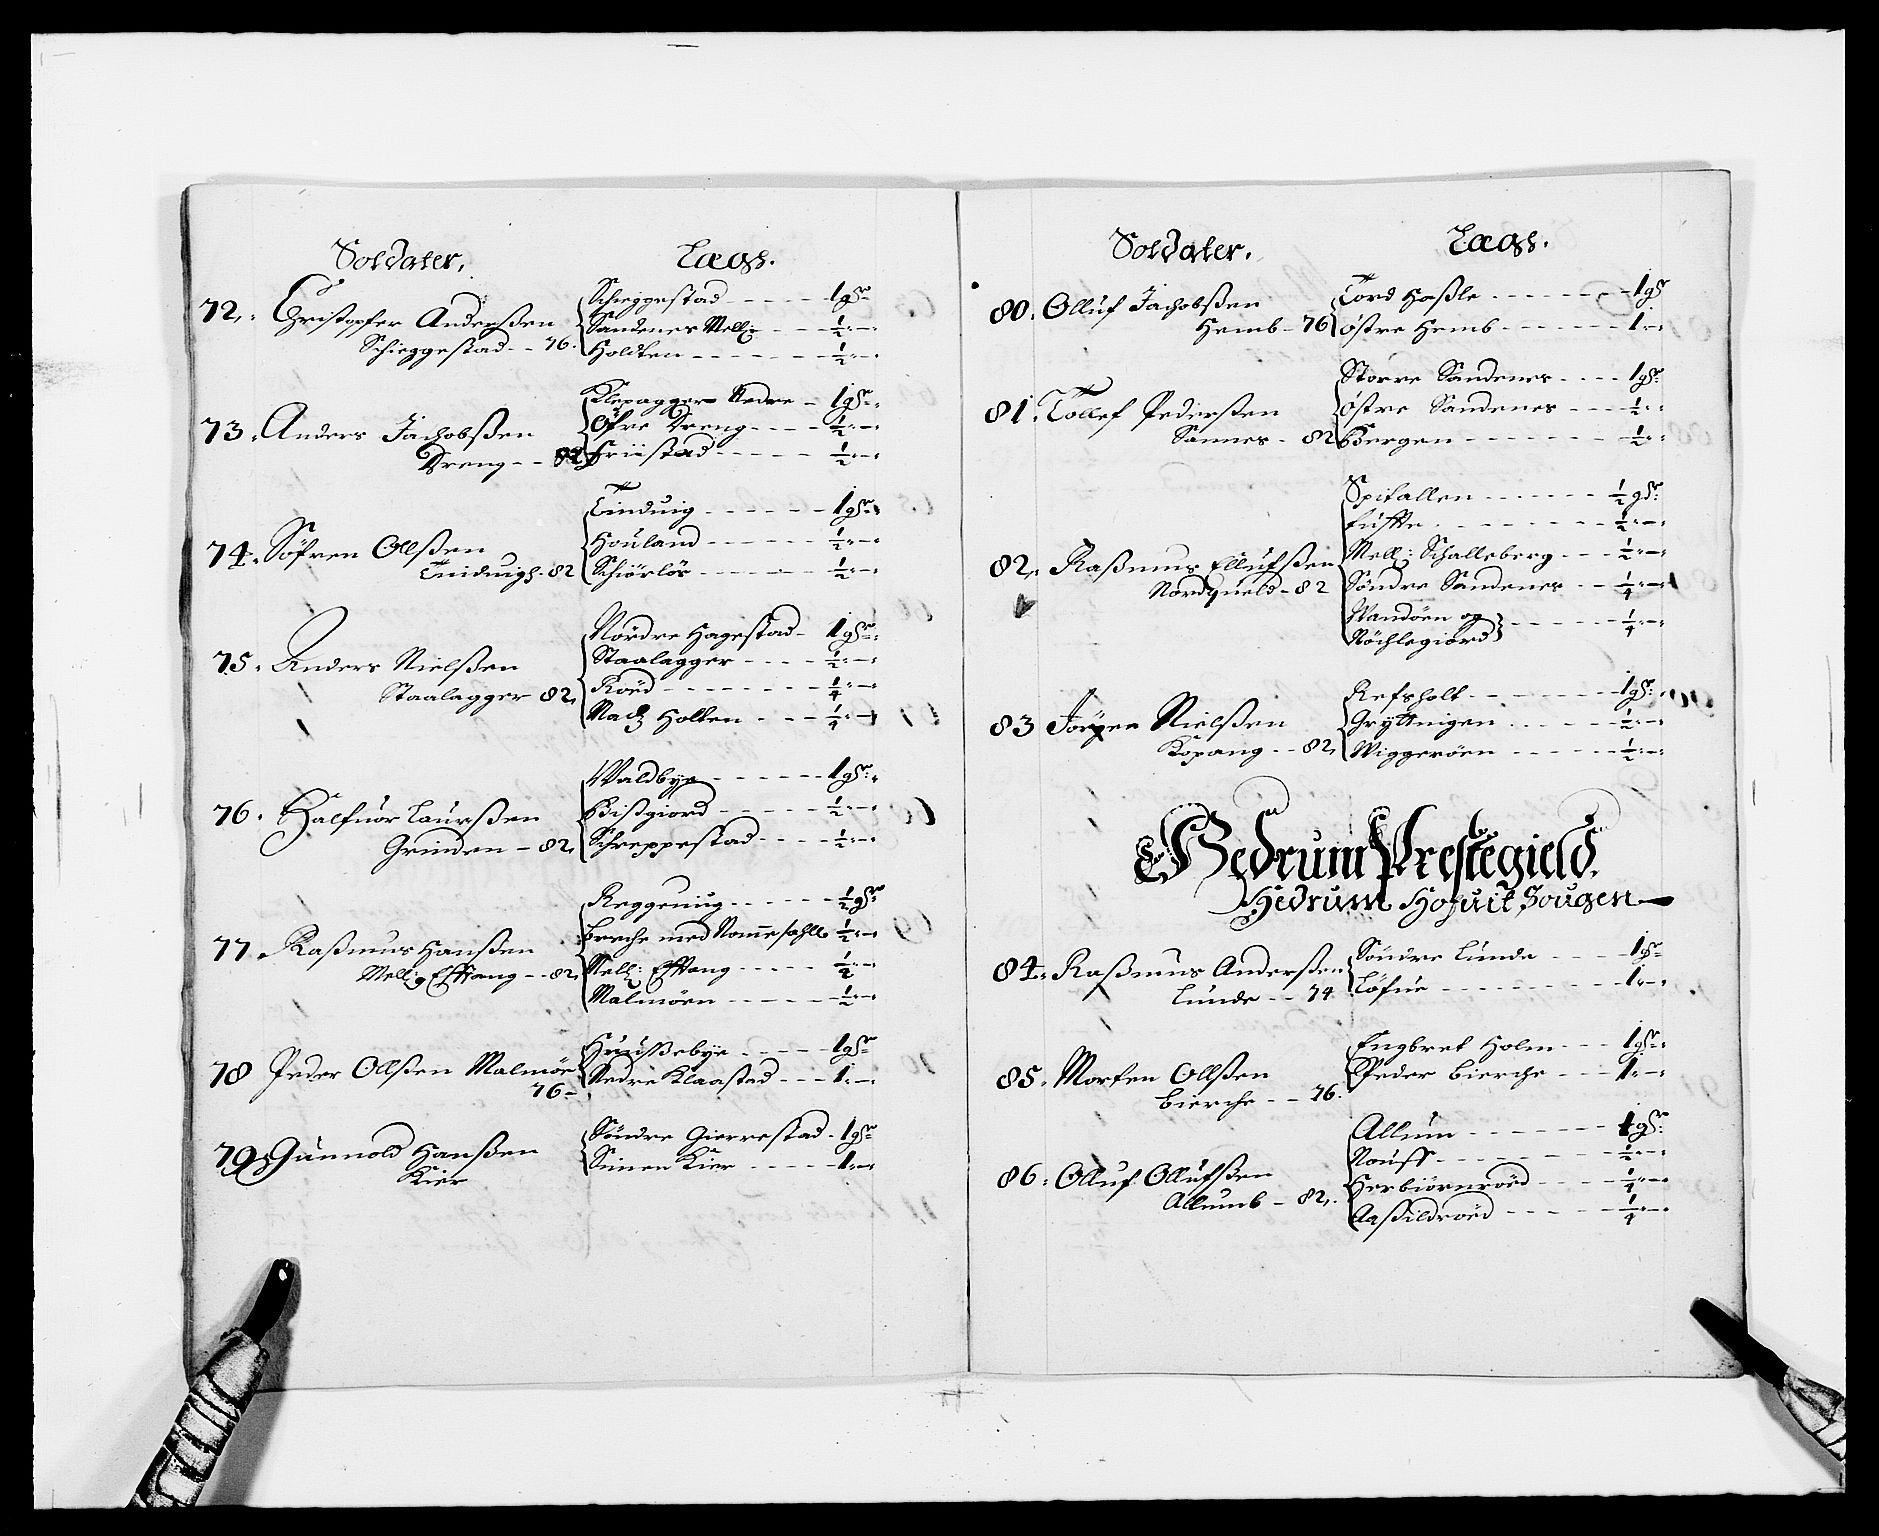 Soldater, Lægs.
72. Christopfer Anderßen
Schieggestad -- 76.
Schieggestad 1 gr
Sandenes Mell: ½
Holdten ½
73. Anders Jachobßen
Dreng -- 82
Klepagger Nedre 1 gr
Öfre Dreng ½
Friistad ½
74. Söfren Ollßen
82
Tinduig 1 gr
Houland ½
Schiörlös ½
75. Anders Nielßen
Staalagger 82,
Nordre Hagestad 1 gr
Staalagger ½
Röed ¼
Holten ¼
76. Halfuor Laurßen
Grinden - 82,
Waldbye 1 gr
Bißgiord ½
Schreppestad ½
77. Raßmus Hanßen
Mell: Efftang -- 82
Reggeuiug ½ gr
med ½
Mell: Efftang ½
Malmöen ½
78 Peder Ollßen Malmöe
76 -
Huußebye 1 gr
Nedre Klaastad 1
79 Gunnold Hanßen
Kier
Söndre Gierrestad 1 gr
Simen Kier 1
Soldater. Lægs.
80. Olluf Jachobßen
Hemb - 76
Tord Haßle 1 gr
Östre Hemb 1
81. Tollef Pederßen
Sannes - 82
Storre Sandenes 1 gr
Östre Sandenes ½
Bergen ½
82. Raßmus Ellufßen
Nordqueld - 82
Spitallen ½ gr
½
Mell: Schalleberg ½
Söndre Sandenes ¼
Wandöen og
Röchlegiord ¼
83 Jörgen Nielßen
Kopang -- 82,
Refsholt 1 gr
Gryttnigen ½
Wiggeröen ½
Hedrum Prestegield.
Hedrum Hofuit Sougen
84. Raßmus Anderßen
Lunde -- 74
Söndre Lunde 1 gr
Löfue 1
85. Morten Ollßen
Bierche -- 76.
Engbret Holm 1 gr
Peder Bierche 1
86. Olluf Ollufßen
Allumb - 82,
Allum 1 gr
Nouff ½
Herbiörnröed ¼
Aaßildröed ¼